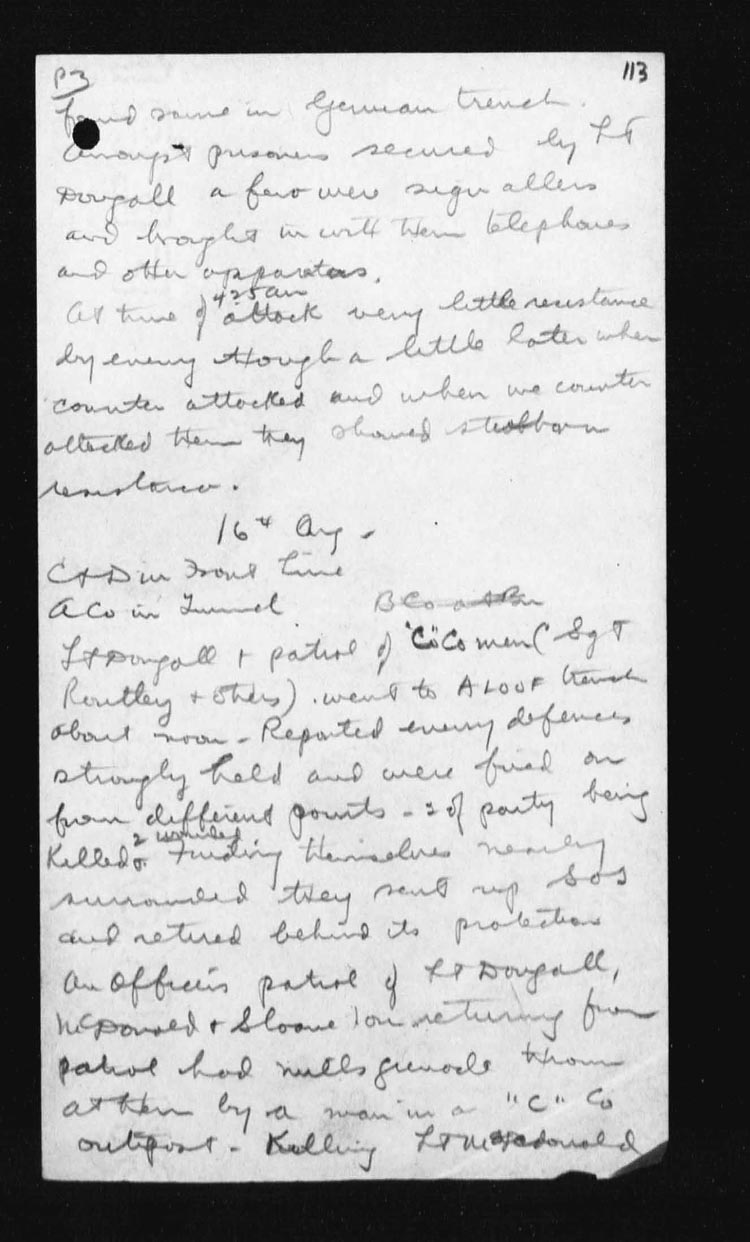 P3
113
found same in German trench.
Amongst prisoners secured by Lt
Dougall a few were signallers
and brought in with them telephones
and other apparatus.
At time of 4.25 am attack very little resistance
by enemy though a little later when
counter attacked and when we counter
attacked them they showed stubborn
resistance.
16th Aug -
C & D in Front Line
A Co in Tunnel B Co at Bn
Lt Dougall + patrol of "C" Co men (Sgt
Routley + others). went to ALOOF trench
about noon - Reported enemy defences
strongly held and were fired on
from different points - 2 of party being
Killed & 2 wounded Finding themselves nearly
surrounded they sent up SOS
and retired behind its protection
An Officers patrol of Lt Dougall,
McDonald + Sloane on returning from
patrol had mills grenade thrown
at them by a man in a "C" Co
outpost - Killing Lt McDonald